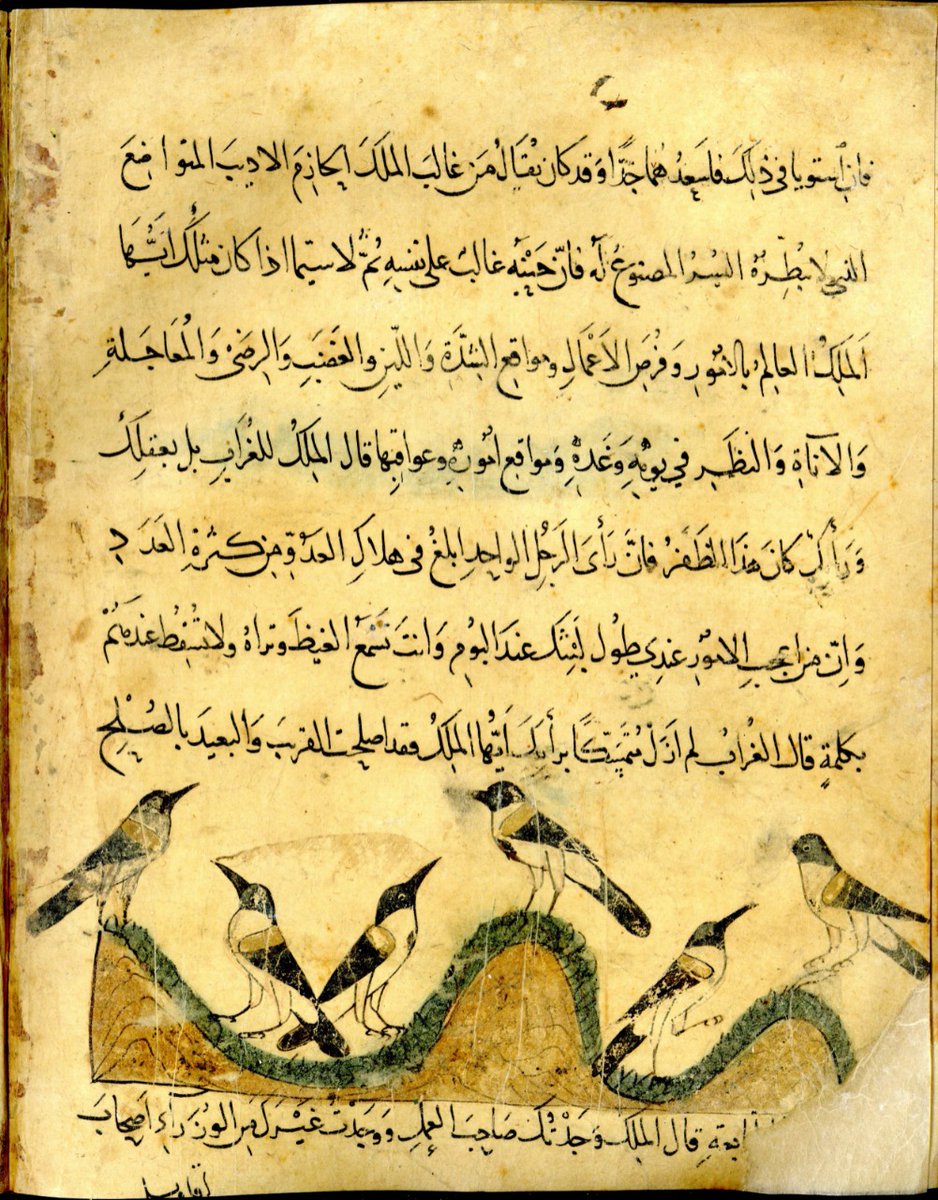 فان استويا في ذلك فاسعدهما جدا وقد كان يقال من غالب الملك الحازم الاديب المتواضع
الذي لا تبطره المصنوع له فان حينه غالب على نفسه ثم لا سيما اذا كان مثلك ايها
الملك العالم بالامور وفرص الاعمال ومواقع الشدة واللين والغضب والرضى والمعاجلة
والاناة والنظر في يومه وغده ومواقع اموره وعواقبها قال الملك للغراب بل بعقلك
ورأيك كان هذا الظفر فان رأى الرجل الواحد ابلغ في هلاك العدو من كثرة العدد
وان من اعجب الامور عندي طول لبثك عند البوم وانت تسمع الغيظ وتراه ولا تسقط عندهم
بكلمة قال الغراب لم ازل متمسكا برأيك ايها الملك فقد اصلحت القريب والبعيد بالصلح
قال الملك وجدتك صاحب العمل ووجدت غيرك من الوزراء اصحاب
اقاويل